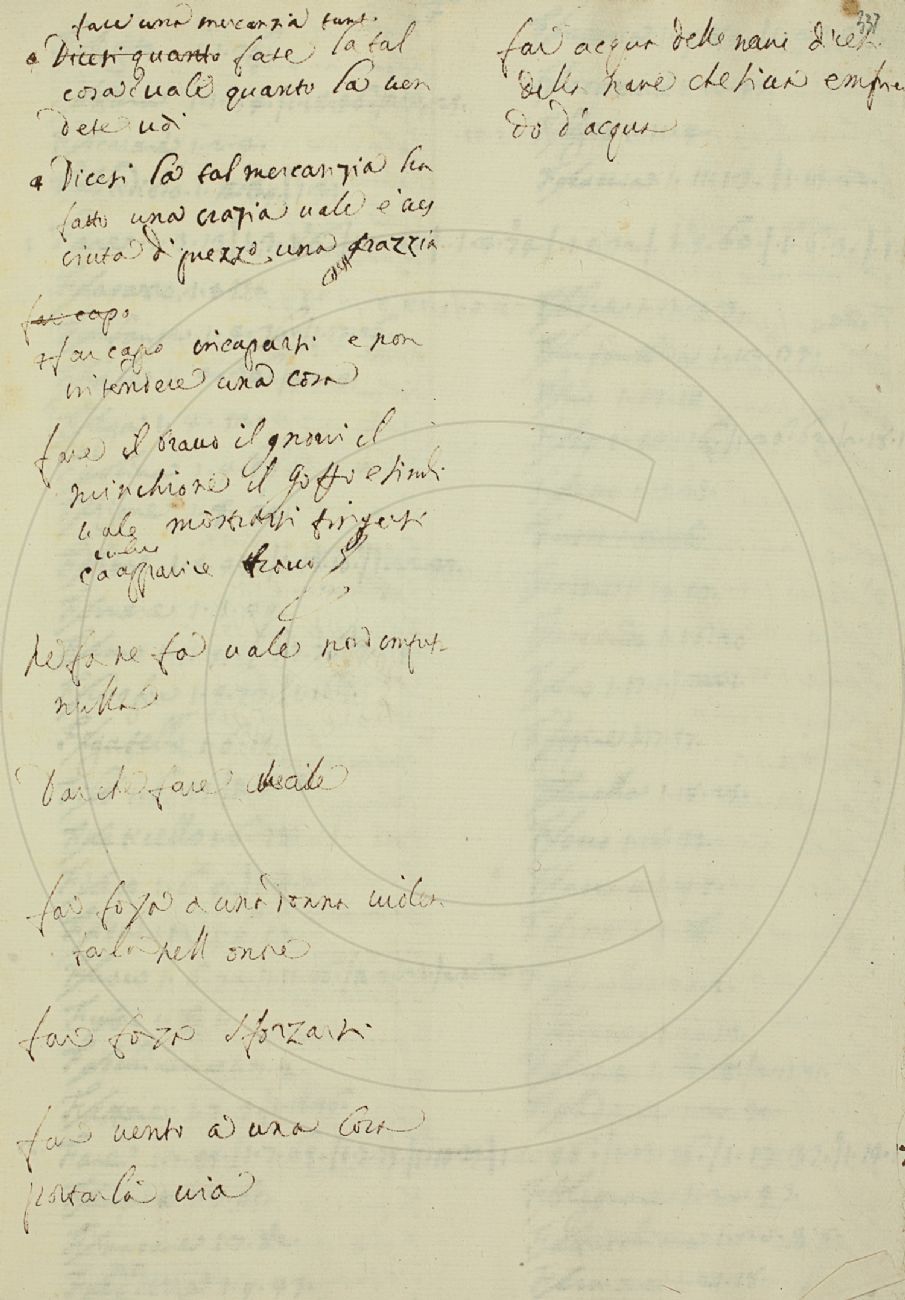 fare una mercanzia tant.
Dicesi quanto fate la tal
cosa e vale quanto la ven
dete voi
Dicesi la tal mercanzia ha
fatto una crazia vale è cres
ciuta di prezzo una crazzia
far capo
far capo incaparsi e non
intendere una cosa
fare il bravo il gnorri il
minchione il goffo e simili
vale mostrarsi fingersi
apparire
ne fa ne fa vale
nulla
Dar che fare
far forza a una donna violen
tarla nell onore
far forza sforzarsi
far vento a una cosa
portarla via
337
far acqua delle navi dicesi
della nave che si va empien
do d'acqua